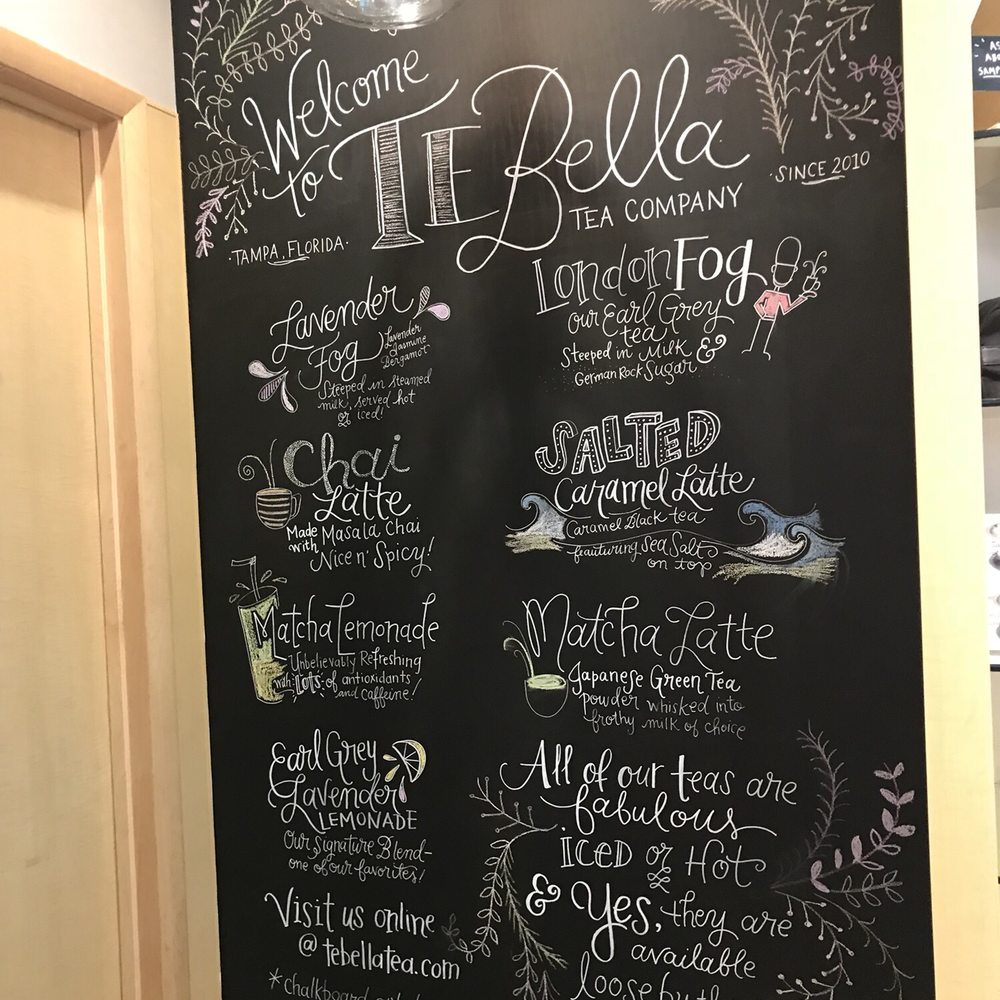 Welcome
to TEBella
TEA COMPANY
· SINCE 2010
· TAMPA, FLORIDA ·
Lavender
Fog
Lavender
Jasmine
Bergamot
Steeped in steamed
milk, served hot
or iced!
Chai
Latte
Made
with Masala Chai
Nice n' Spicy!
Matcha Lemonade
Unbelievably Refreshing
with LOTS of antioxidants
and caffeine!
Earl Grey
Lavender
LEMONADE
Our Signature Blend-
one of our favorites!
Visit us online
@ tebellatea.com
*chalkboard
London Fog
our Earl Grey
tea
Steeped in Milk &
German Rock Sugar
SALTED
Caramel Latte
Caramel Black tea
frauturing Sea Salt
on top
Matcha Latte
Japanese Green Tea
powder whisked into
frothy milk of choice
All of our teas are
fabulous
ICED or Hot
& Yes, they are
available
loose by th
AS
ABO
SAMP